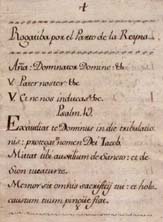 4
Rogativa por el Parto de la Reyna
Aña: Domnator Domine &c
V Pater noster &c.
V. Et ne nos inducas &c.
Psalm. 19.
Exaudiat te Domnus in die tribulatio
nis: protegat nomen Dei Jacob.
Mittat tibi auxilium de Sancto: et de
Sion tueatur te.
Memor sit omnis sacrificij tui: et holo
caustum tuum pingue fiat.